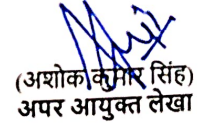 (अशोक कुमार सिंह)
अपर आयुक्त लेखा